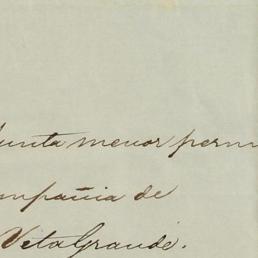 Junta menor perm
mpañia de
Veta Grande.